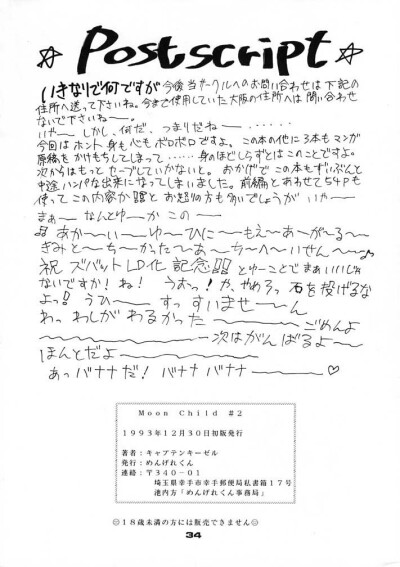 ☆ Postscript ☆
いきなりで何ですが今後当サークルへのお問い合わせは下記の
住所へ送って下さいね。今まで使用していた大阪の住所へは問い合わせ
ないで下さいねー。
いやー しかし、何だ、つまりだねー・・・・・・
今回はホント身も心もボロボロですよ。この本の他に3本もマンガ
原稿をかけもちしてしまって……身のほどしらずとはこのことですよ。
次からはもっとセーブしていかないと。おかげでこの本もずいぶんと
中途ハンパな出来になってしまいました。前編とあわせて54Pも
使ってこの内容か!?とお怒りの方も多いでしょうが いやー
まぁー なんとゆーか この ー
♫ あかーいーゆーひにーもえーあーがーるー
きみとーちーかったーあーちーへーいせんー♪
祝 ズバットLD化 記念!! とゆーことでまぁいいじゃ
ないですか!ね! うおっ!か、やめろっ 石を投げるな
よっ!! うひー すっ すいませーん
わっ わしがわるかったー ごめんよ
ー 次はがんばるよー
ほんとだよー
あっバナナだ! バナナバナナー♡
Moon Child #2
1993年12月30日初版発行
著者：キャプテンキーゼル
発行：めんげれくん
連絡：〒340-01
埼玉県幸手市幸手郵便局私書箱17号
池内方「めんげれくん事務局」
☺18歳未満の方には販売できません☺
34